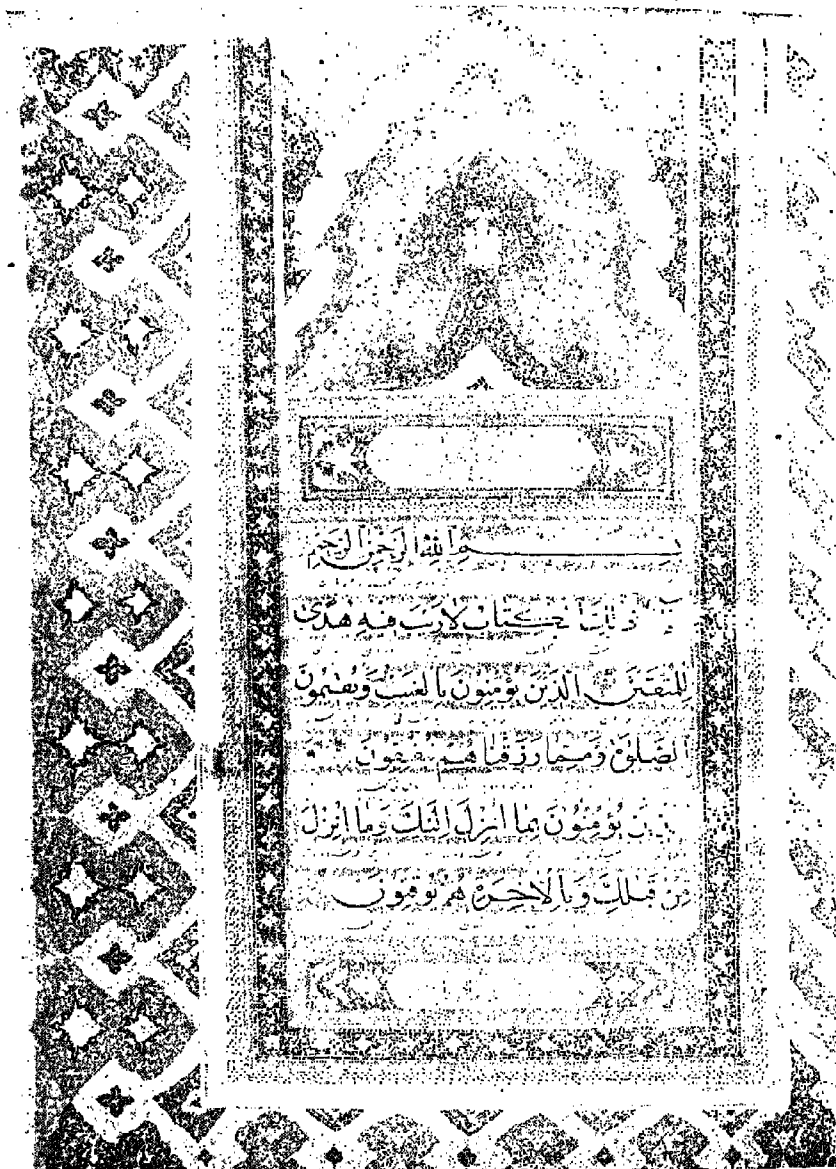 بسم الله الرحمن الرحيم
ذلك الكتاب لا ريب فيه هدى
للمتقين الذين يؤمنون بالغيب ويقيمون
الصلوة ومما رزقناهم ينفقون
يؤمنون بما انزل اليك وما انزل
من قبلك وبالاخرة هم يوقنون